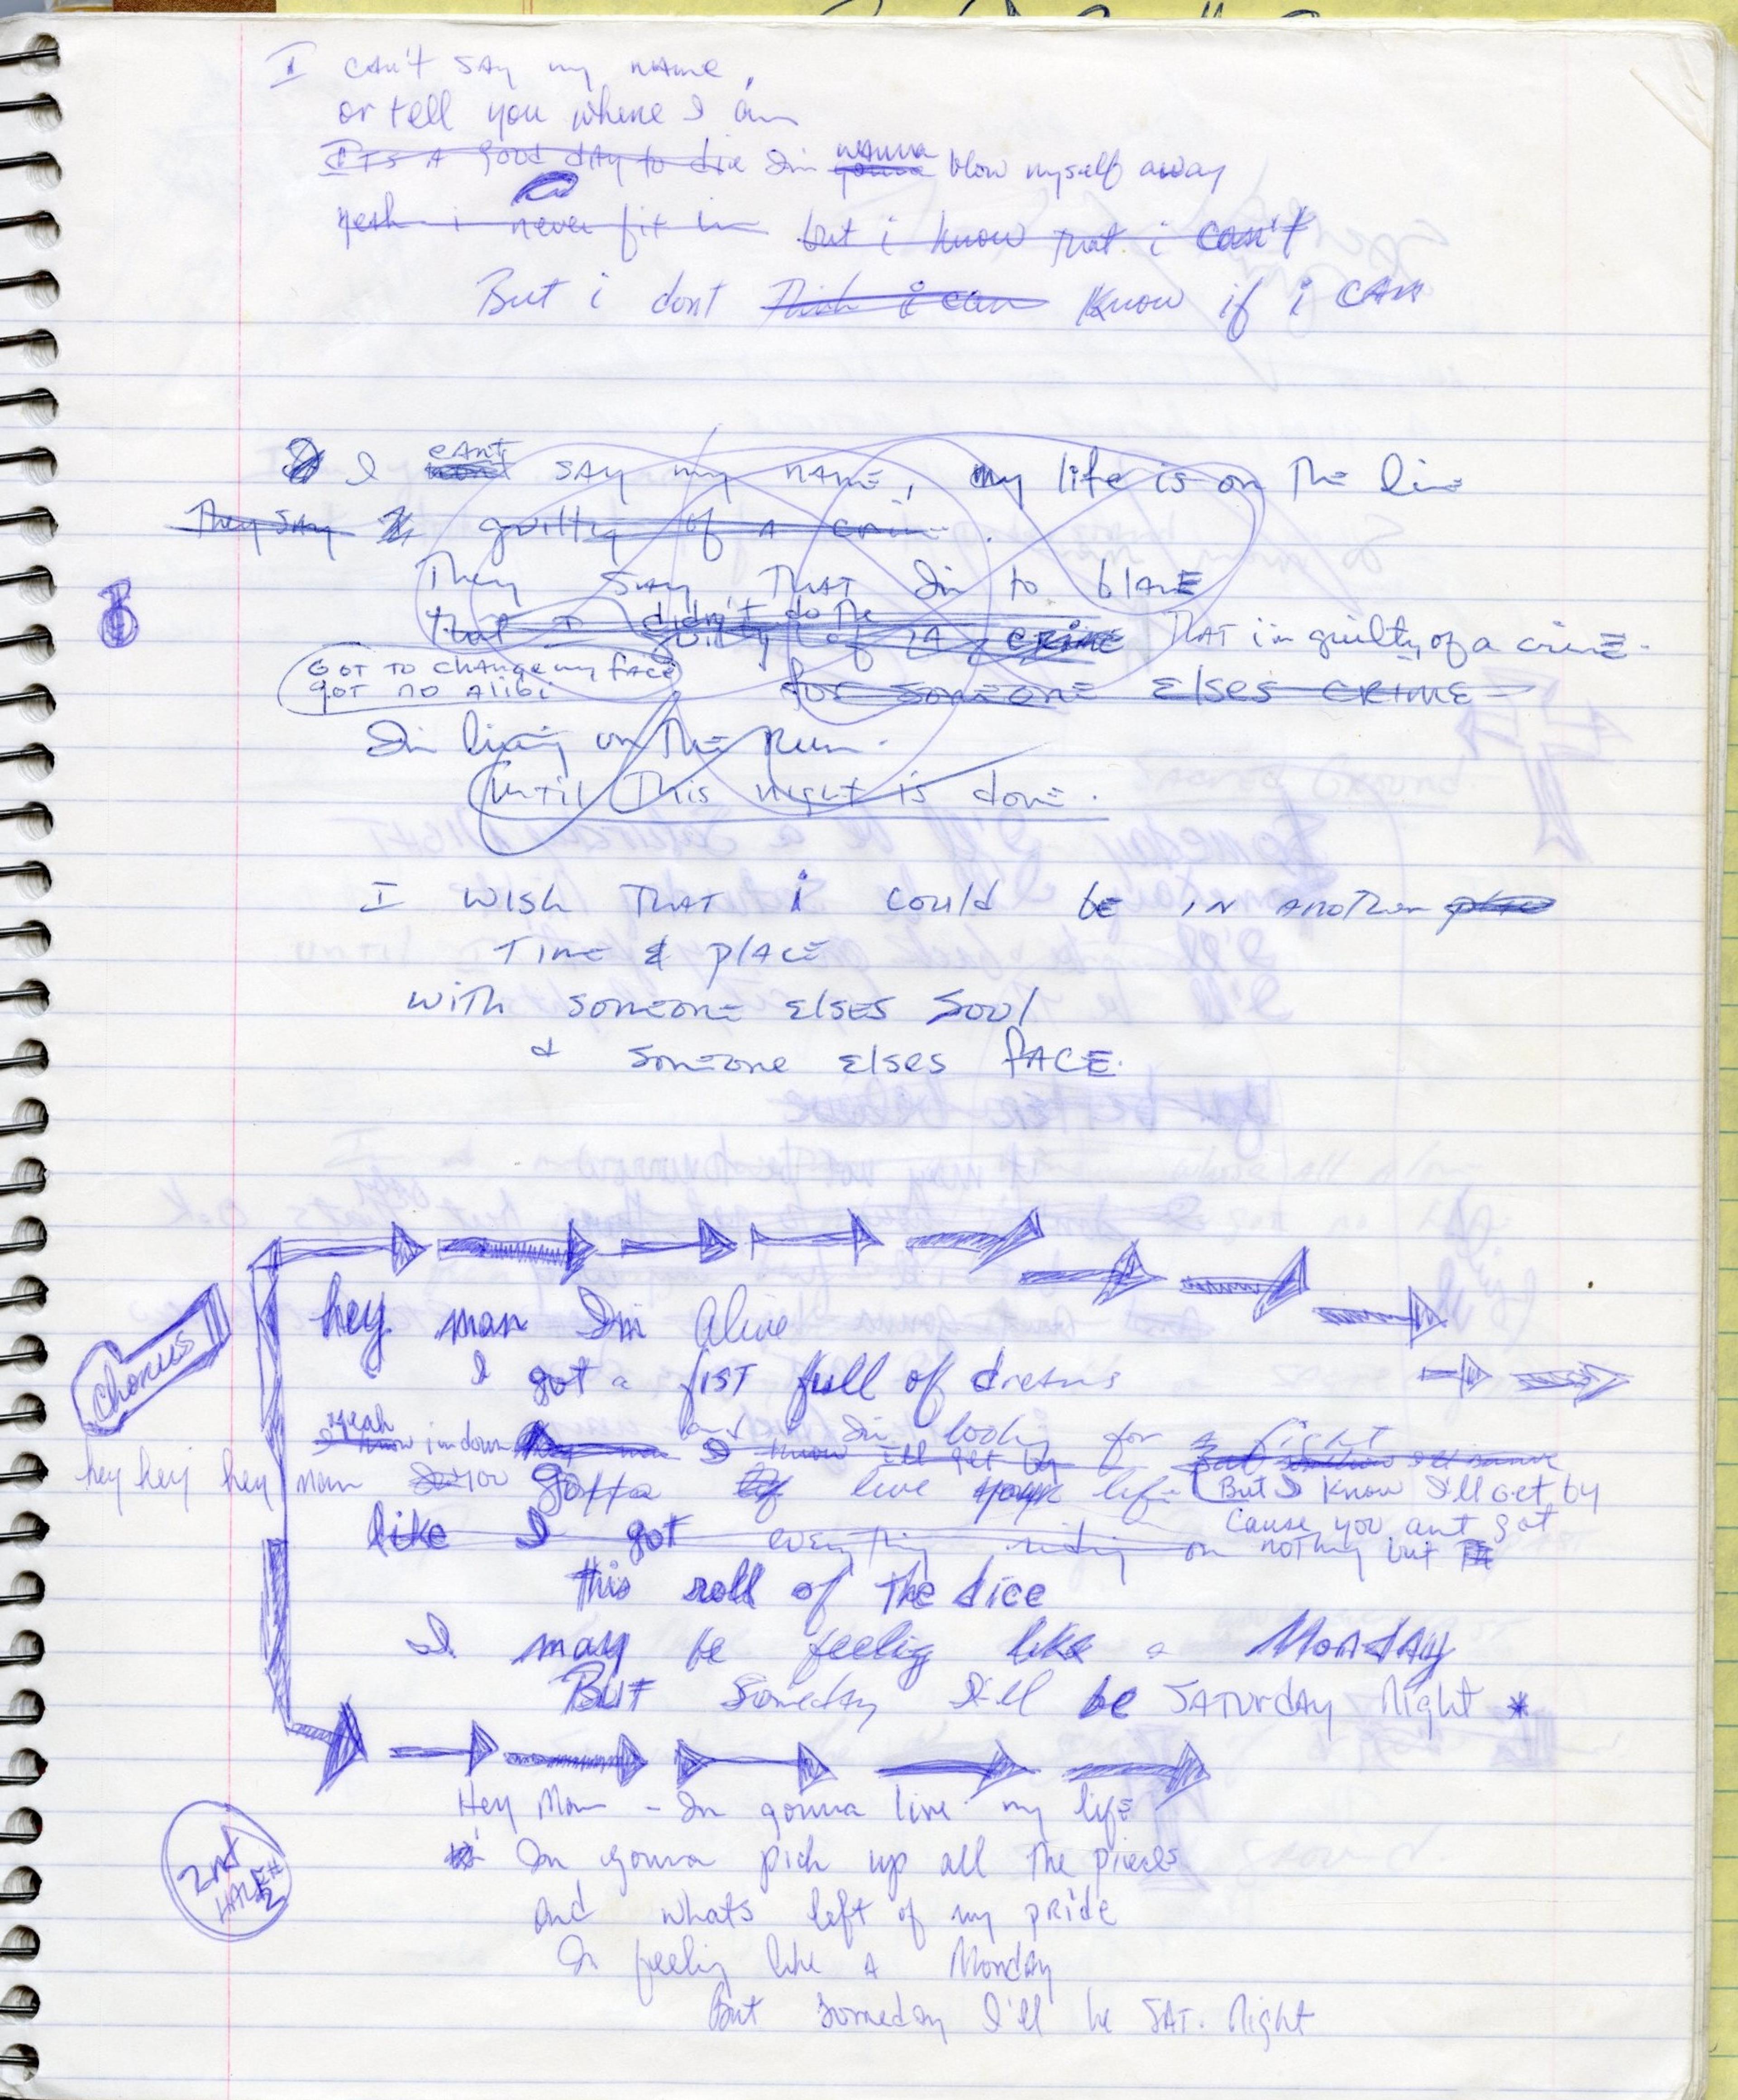 I can't say my name,
or tell you where I am
ITS A good day to die I'm wanna gonna blow myself away
Yeah i never fit in but i know that i can't
But i dont think i can know if i can
I can't say my name, my life is on the line
They say guilty of a crime.
They say that I'm to blame
that I didn't do the
guilty of a crime that i'm guilty of a crime.
got to change my face
got no alibi
for someone elses crime
I'm living on the run.
Until this night is done.
I wish that i could be in another place
time & place
with someone elses soul
& someone elses face.
Chorus
hey man I'm alive
I got a fist full of dreams
yeah and I'm looking for a fight
I know im down hey man I know I'll get by
hey hey hey man you gotta live your life But I know I'll get by
like I got everything riding on
Cause you aint got
nothing but
this roll of the dice
I may be feeling like a Monday
But Someday I'll be Saturday Night *
Hey Man - Im gonna live my life
Im gonna pick up all the pieces
and whats left of my pride
Im feeling like a Monday
But Someday I'll be SAT. Night
2nd
HALF